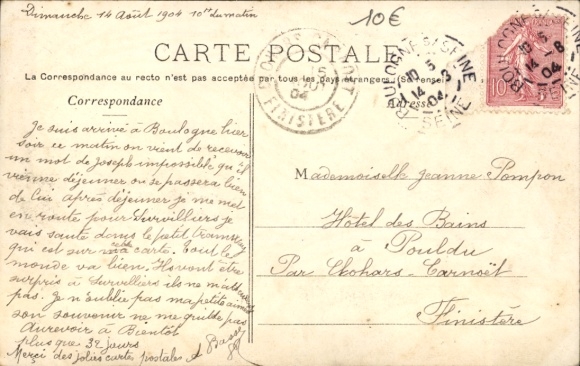 Dimanche 14 Août 1904 10h du matin
10€
CARTE POSTALE
La Correspondance au recto n'est pas acceptée par tous les pays étrangers (Se rense
Correspondance
Adresse
BOULOGNE S/ SEINE
14 8 04
10
FINISTÈRE
04
Je suis arrivé à Boulogne hier
soir ce matin on vient de recevoir
un mot de Joseph impossible qu'il
vienne déjeuner on se passera bien
de lui après déjeuner je me met
en route pour Survilliers je
vais sauté dans le petit tramway
qui est sur cette carte. Tout le
monde va bien. Ils vont être
surpris à Survilliers ils ne m'attendent
pas. Je n'oublie pas ma petite amie
son souvenir ne me quitte pas
Aurevoir à Bientôt
plus que 32 jours
Merci des jolies cartes postales A
Mademoiselle Jeanne Pompon
Hôtel des Bains
à Pouldu
Par Clohars-Carnoët
Finistère